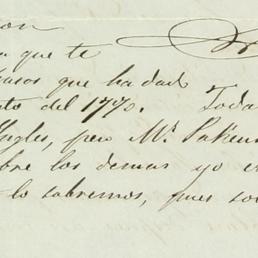 a que te
pasos que ha dado
to del 1770. Toda
Yngles, pero Mr. Paken
bre los demas yo c
lo sabremos, pues so